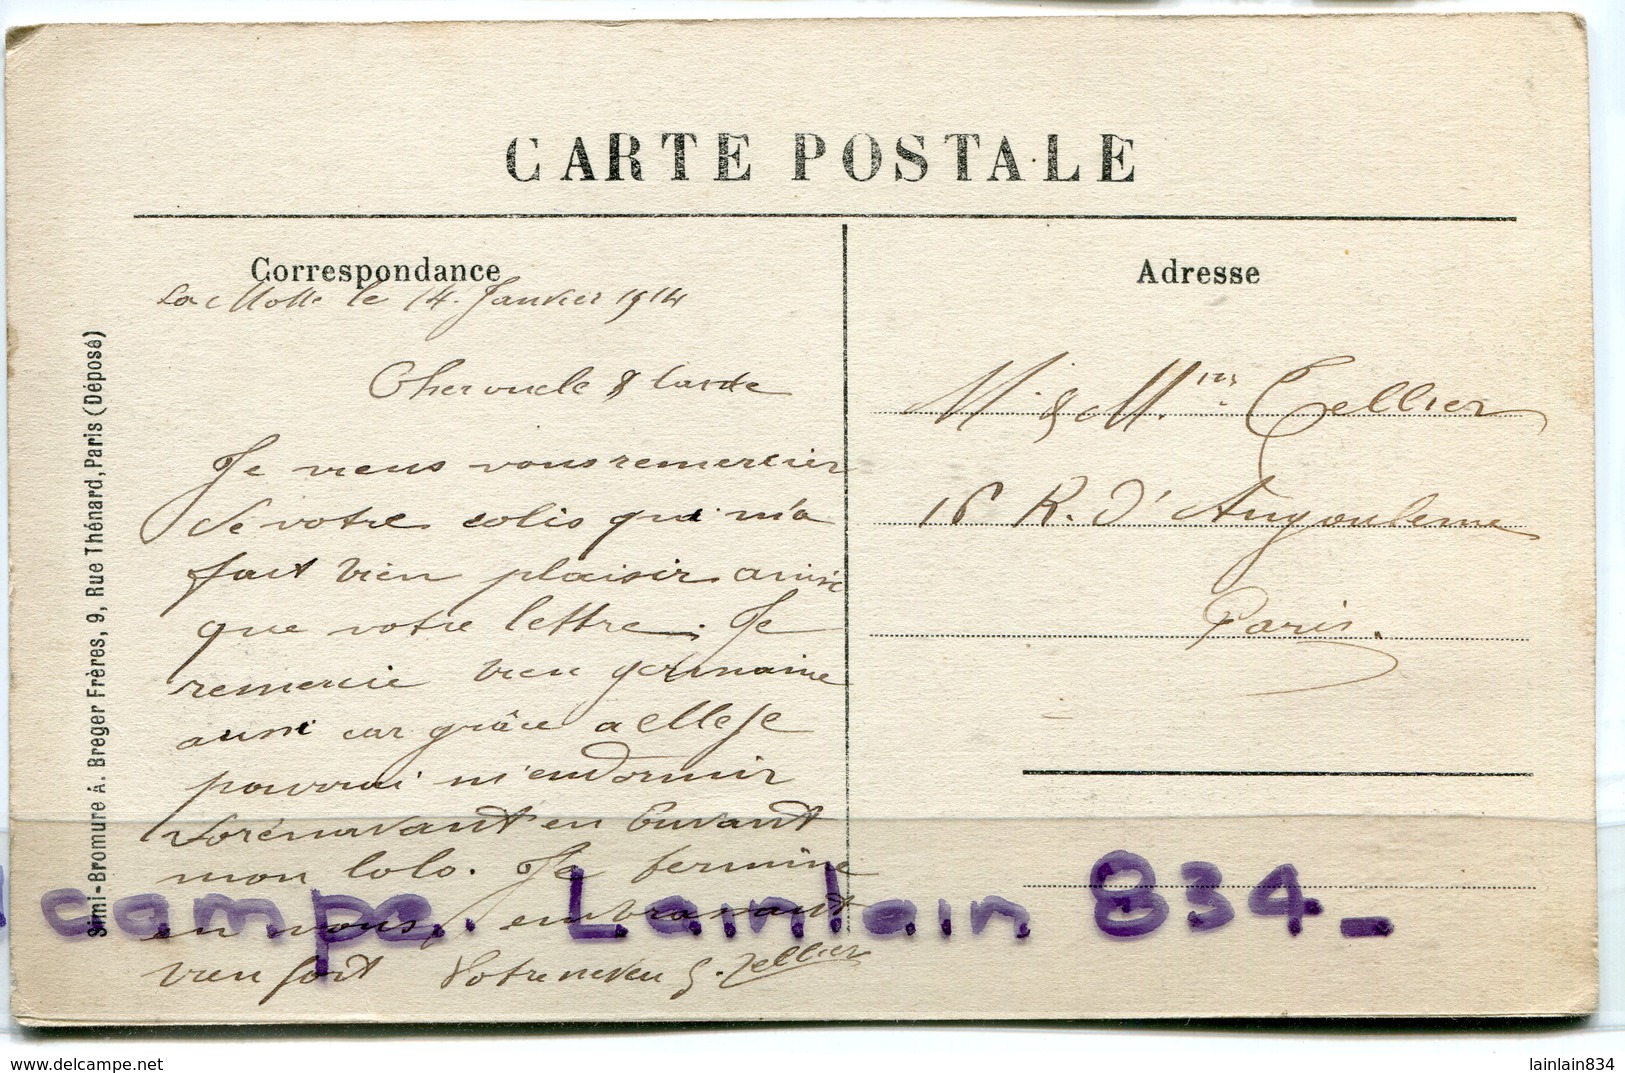 CARTE POSTALE
Correspondance
Adresse
La Motte le 14 Janvier 1914
Cher oncle & tante
Je viens vous remercier
de votre colis qui m'a
fait bien plaisir ainsi
que votre lettre. Je
remercie bien germaine
aussi car grâce a elle je
pourrai m'endormir
dorénavant en buvant
mon lolo. Je termine
en vous embrassant
bien fort Votre neveu G. Tellier
M. & Mme Tellier
16 R. d'Angouleme
Paris.
Simi-Bromure A. Breger Frères, 9, Rue Thénard, Paris (Déposé)
campe. Lainlain 834-
www.delcampe.net
lainlain834